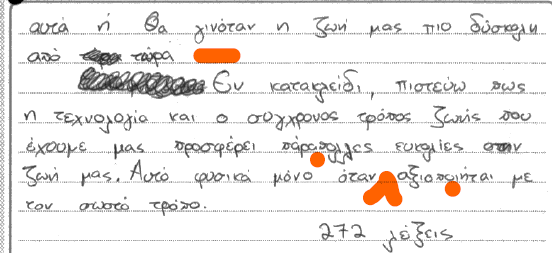 αυτά ή θα γινόταν η ζωή μας πιο δύσκολη
από τώρα
Εν κατακλείδι, πιστεύω πως
η τεχνολογία και ο σύγχρονος τρόπος ζωής που
έχουμε μας προσφέρει πάραπολλες ευκολίες στην
ζωή μας. Αυτό φυσικά μόνο όταν αξιοποιήται με
τον σωστό τρόπο.
272 λέξεις